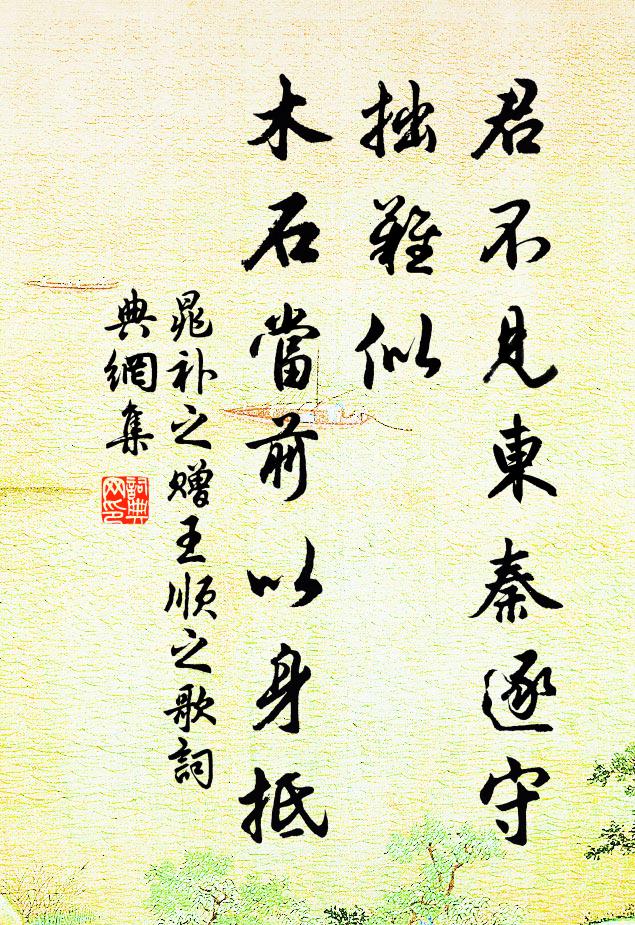 君不見東秦逐守
拙難似
木石當前以身抵
晁补之赠王順之歌詞
典網集
詞典网印